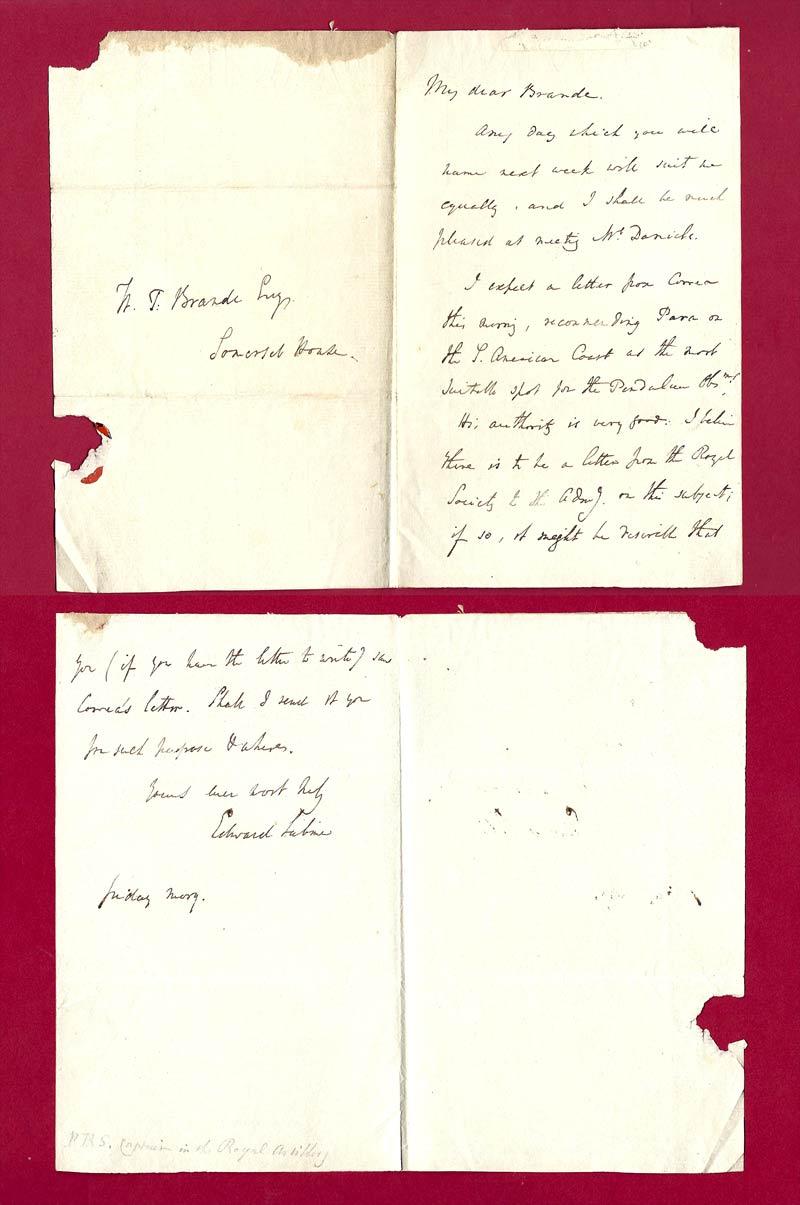 W. T. Brande Esqr.
Somerset House.
My dear Brande.
Any day which you will
name next week will suit me
equally, and I shall be much
pleased at meeting Mr. Daniell.
I expect a letter from Correa
this morng, recommending Para on
the S. American Coast as the most
suitable spot for the Pendulum Obsns.
His authority is very good. I believe
there is to be a letter from the Royal
Society to the Admy. on this subject;
if so, it might be desirable that
you (if you have the letter to write) saw
Correa's letter. Shall I send it you
for such purpose & where.
Yours ever most truly
Edward Sabine
friday morng.
FRS. Captain in the Royal Artillery